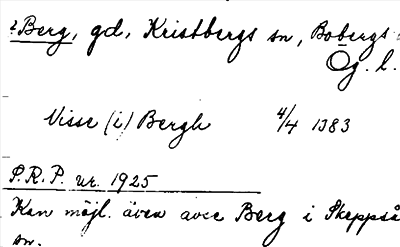 ? Berg, gd, Kristbergs sn, Bobergs
Ög. l.
Nisse (i) Bergh 4/4 1383
P.R.P. nr. 1925
Kan möjl. även avse Berg i Skeppså
sn.